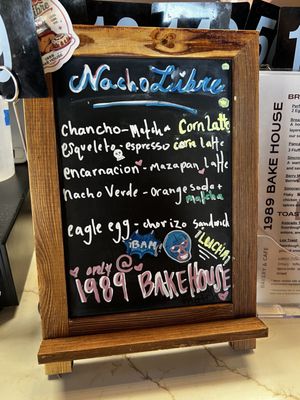 Nacho Libre
chancho - Matcha Corn Latte
esqueleto - espresso corn latte
encarnacion - Mazapan latte
nacho Verde - orange soda + matcha
eagle egg - chorizo sandwich
¡BAM!
¡LUCHA!
only @
1989 BAKEHOUSE
1989 BAKE HOUSE
BAKERY & CAFE
TOAS
BR